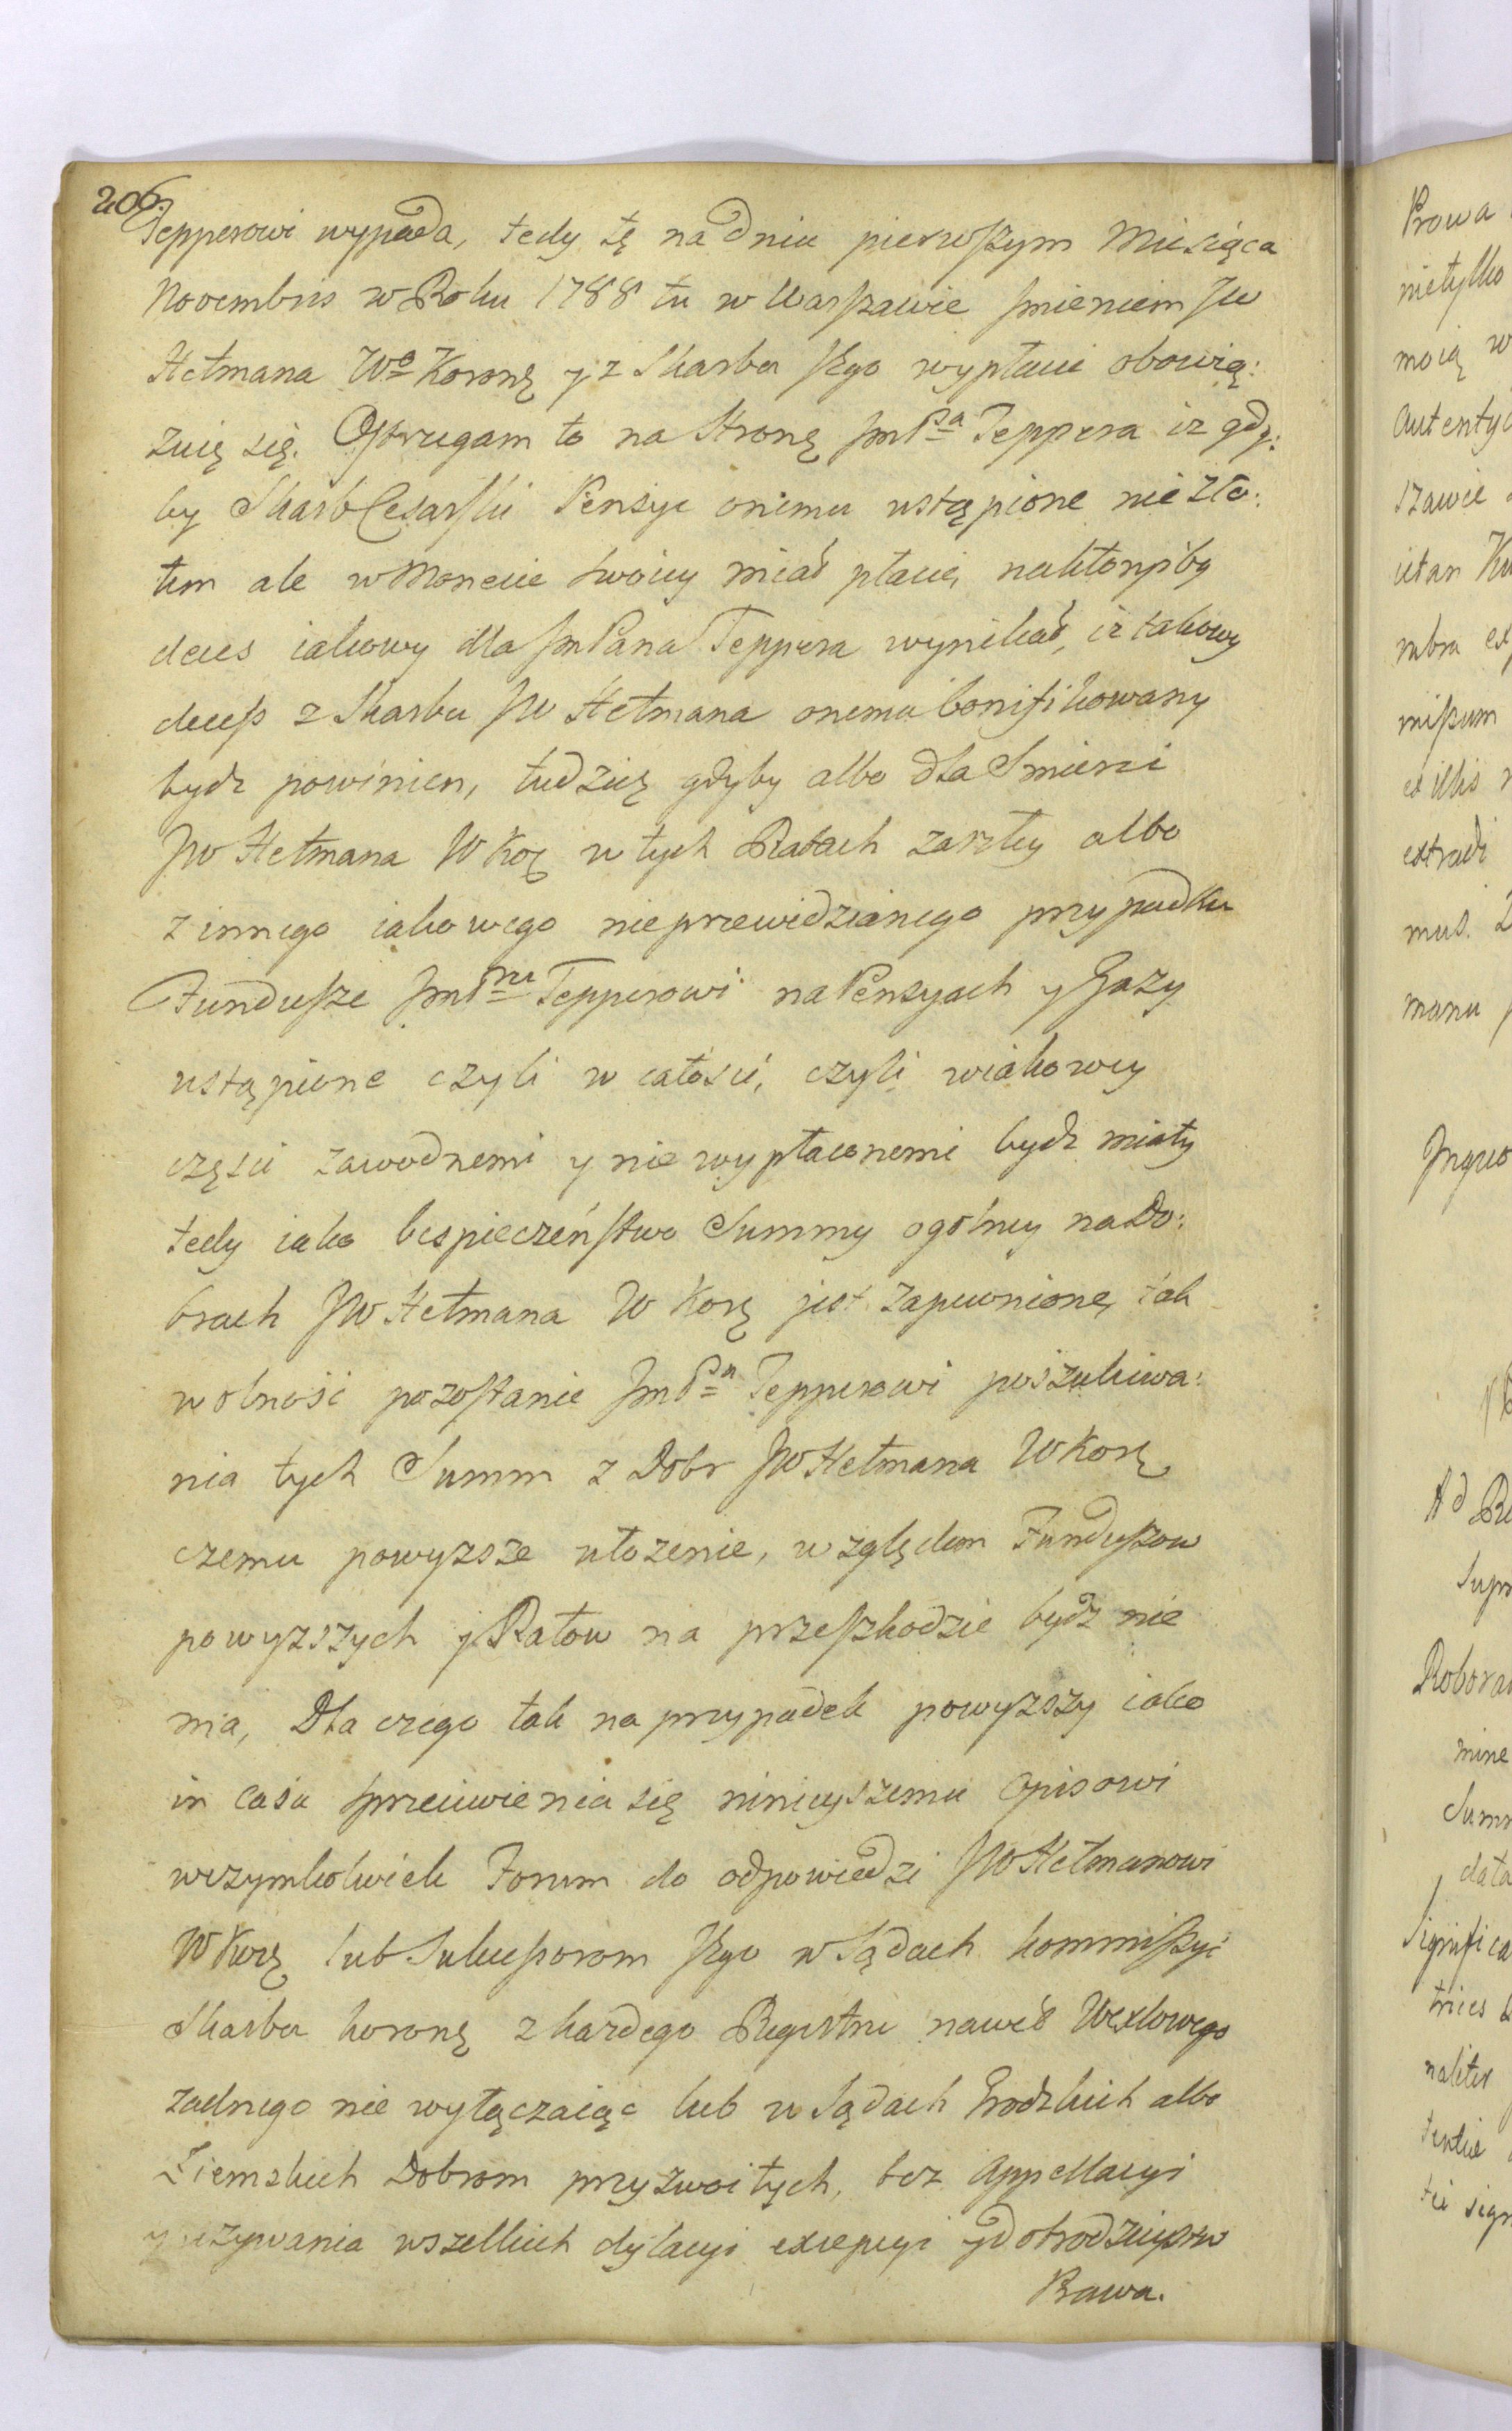 206.
Tepperowi wypada, tedy tę na dniu pierwszym Miesiąca
Novembris w Roku 1788 tu w Warszawie Jmieniem JW
Hetmana Wo Koronę y z Skarbu JEgo wypłacić obowią:
zuię się. Ostrzegam to na Stronę JmPa Teppera iz gdy:
by Skarb Cesarski Pensye onemu ustąpione nie zło:
tem ale w Monecie swoiey miał płacić, na ktorey by
deces iakowy dla JmPana Teppera wynikał, iz takowy
decess z Skarbu JW Hetmana onemu bonifikowany
bydz powinien, tudzież gdyby albo dla Smierci
JW Hetmana W Kor w tych Ratach zaszłey albo
z innego iakowego nieprzewidzianego przypadku
Fundusze JmPnu Tepperowi na Pensyach y Gazy
ustąpione czyli w całości, czyli w iakowey
części zawodnemi y nie wypłaconemi bydz miały
tedy iako bespieczeństwo Summy ogolney na Do:
brach JW Hetmana W Korę jest zapewnione, tak
wolność pozostanie JmPn Tepperowi poszukiwa:
nia tych Summ z Dobr JW Hetmana W Korę
czemu powyzsze ułozenie, względem Funduszow
powyzszych y Ratow na przeszkodzie bydz nie
ma, Dla czego tak na przypadek powyzszy iako
in casu sprzeciwienia się ninieyszemu Opisowi
wczymkolwiek Forum do odpowiedzi JW Hetmanowi
W Korę lub Sukcessorom JEgo w Sądach Kommissyi
Skarbu Koronę z kazdego Regestru nawet Wexlowego
zadnego nie wyłączaiąc lub w Sądach Grodzkich albo
Ziemskich Dobrom przyzwoitych, bez Appellacyi
y uzywania wszelkich dylacyi excepcyi y dobrodzieystw
Prawa.
Prawa
nietylko
moią w
Autentyc
szawie
mbra ex
missum
ex illis
extradi
mus.
manu
Ad Re
Supr
Roboran
mine
Sum
data
Significa
naliter